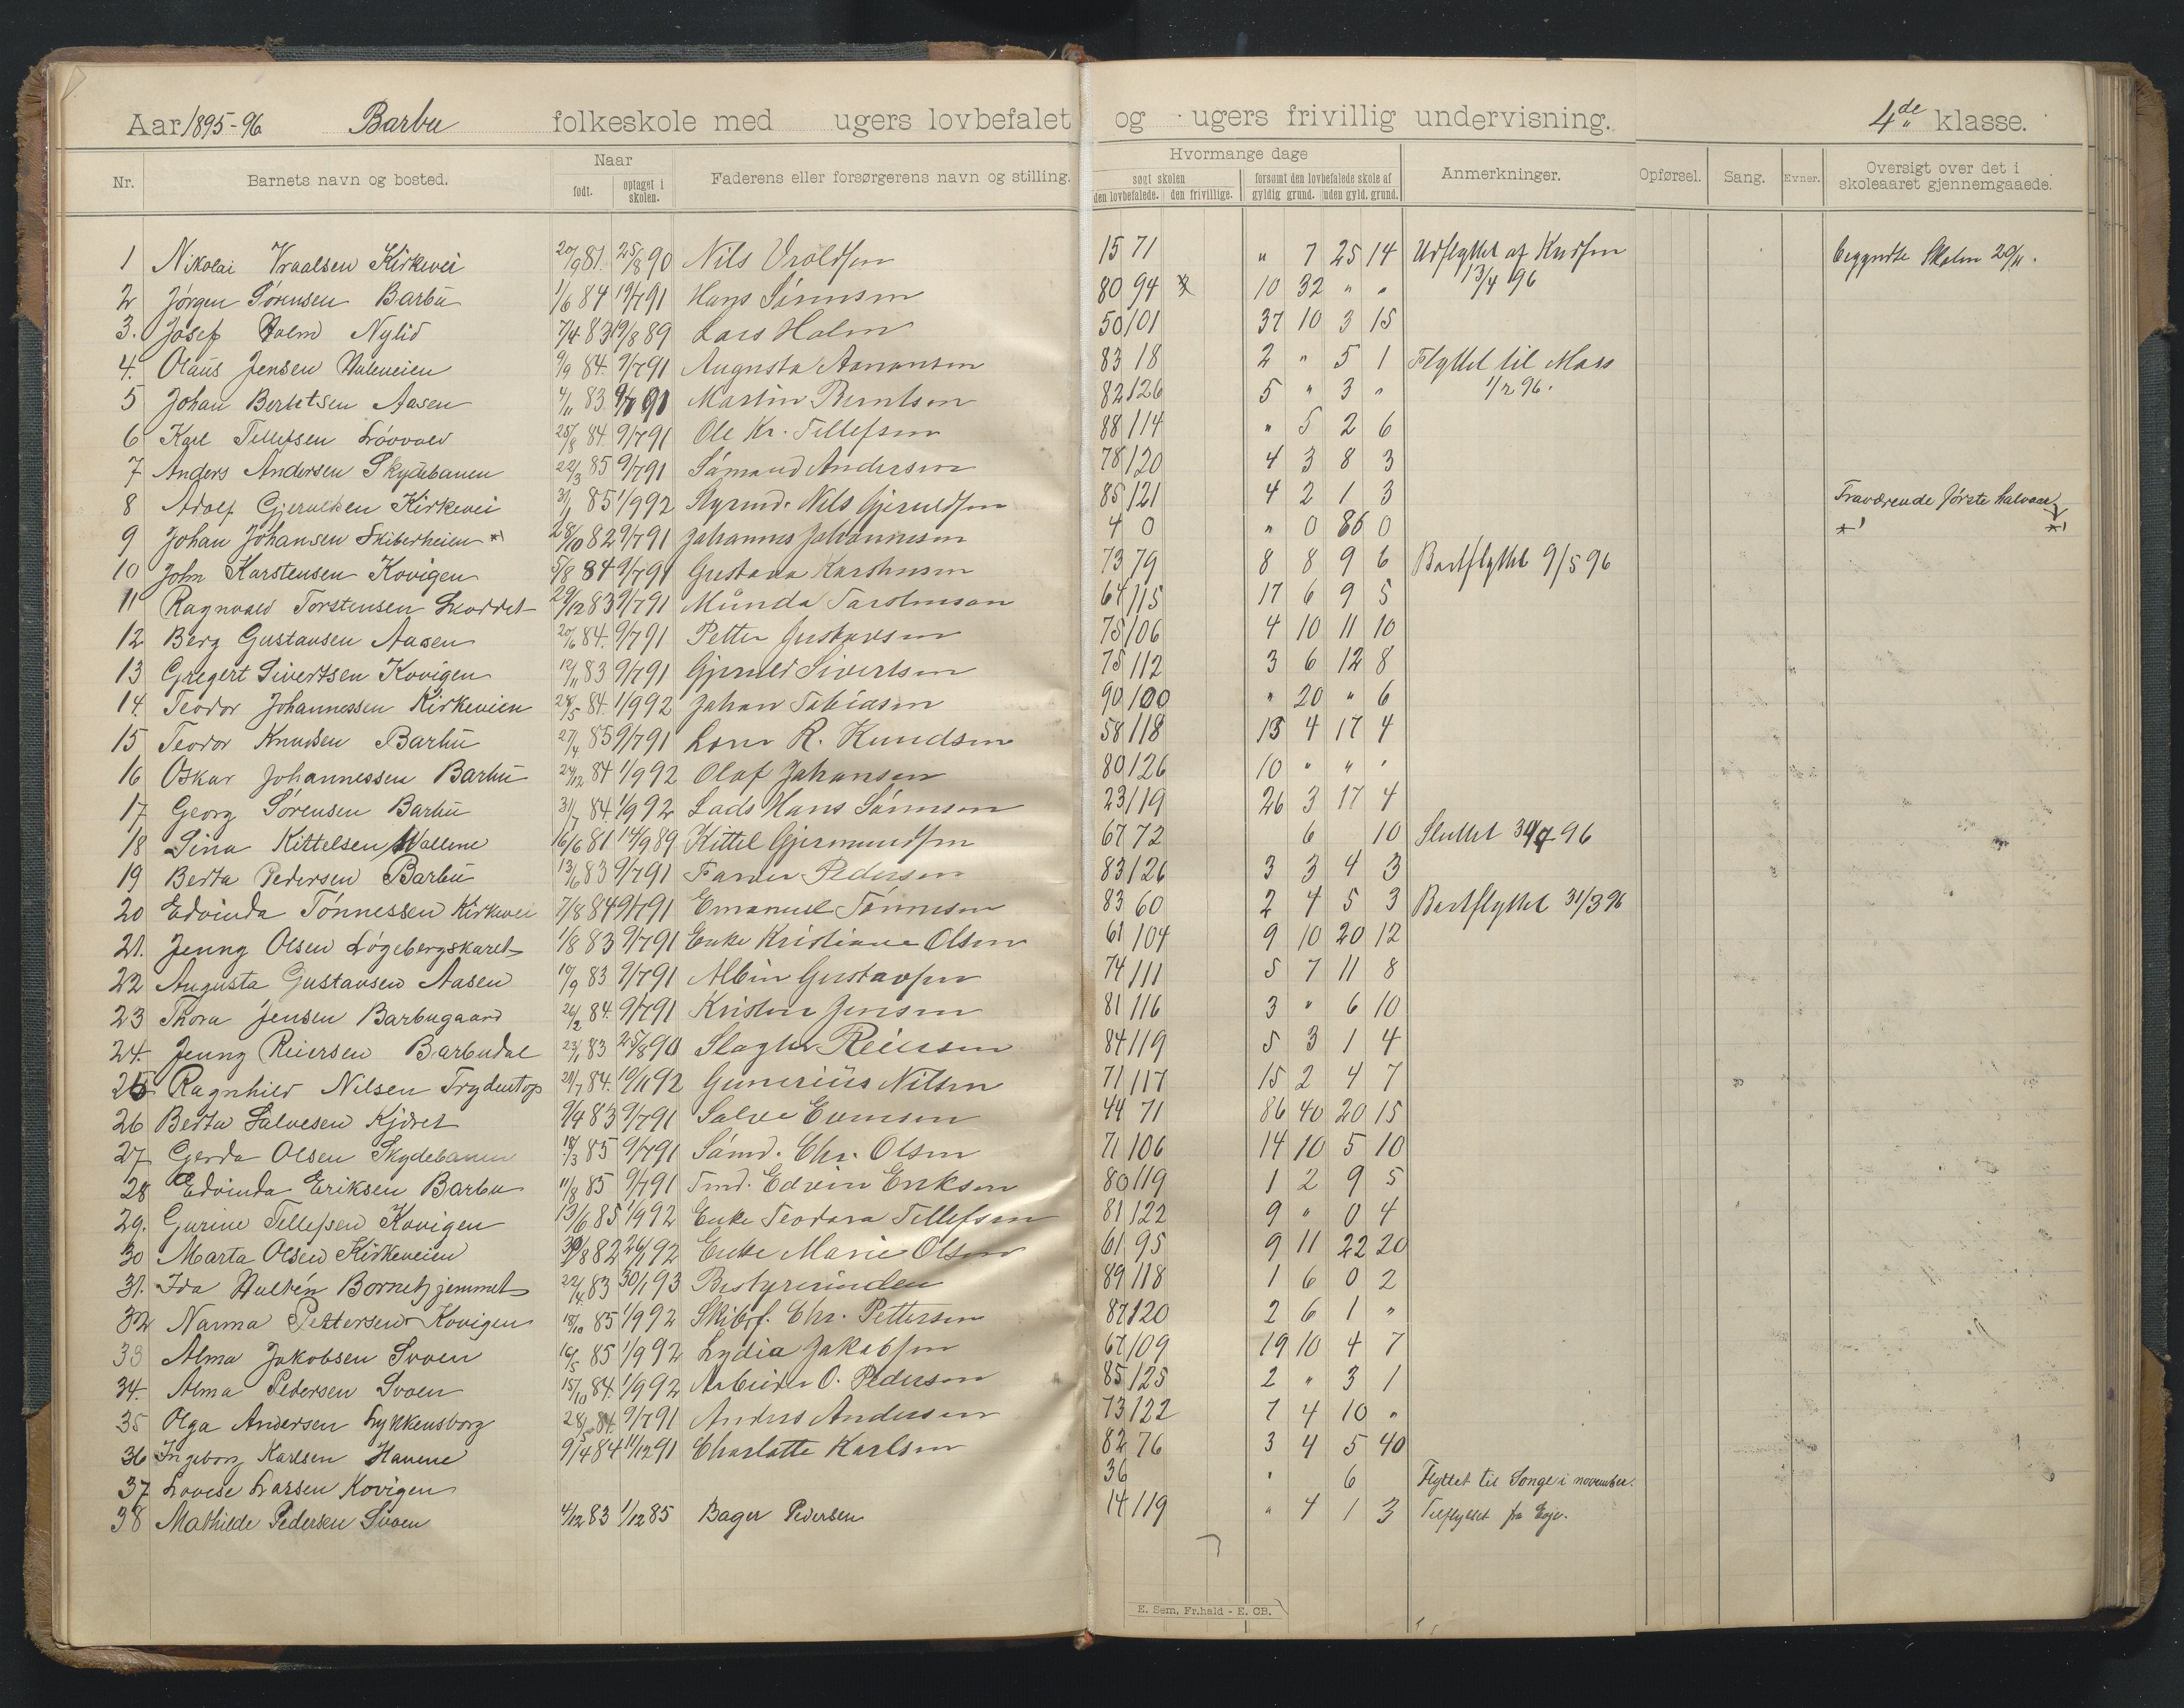 Aar 1895-96 Barbu folkeskole med ugers lovbefalet og ugers frivillig undervisning. 4de klasse.
Nr. Barnets navn og bosted. Naar født. optaget i skolen. Faderens eller forsørgerens navn og stilling. Hvormange dage søgt skolen den lovbefalede. den frivillige. forsømt den lovbefalede skole af gyldig grund. uden gyld. grund. Anmerkninger. Opførsel. Sang. Evner. Oversigt over det i skoleaaret gjennemgaaede.
1 Nikolai Vraalsen Kirkevei 20/9 81. 25/8 90 Nils Vroldsen 15 71 " 7 25 14 Udflyttet af 13/4 96 begyndte Skolen
2 Jørgen Sørensen Barbu 1/6 84 19/7 91 Hans Sørensen 80 94 10 32 " "
3. Josef Holm Nylid 7/4 83 19/8 89 Lars Holm 50 101 37 10 3 15
4. Olaus Jensen 9/9 84. 9/7 91 Augusta 83 18 2 " 5 1 Flyttet til 1/2 96.
5 Johan Berntsen Aasen 4/11 83 9/7 91 Martin Berntsen 82 126 5 " 3 "
6 Karl Tellefsen 25/8 84. 9/7 91 Ole Kr. Tellefsen 88 114 " 5 2 6
7 Anders Andersen Skydebanen 22/3 85 9/7 91 Andersen 78 120 4 3 8 3
8 Adolf Gjeruldsen Kirkevei 31/1 85 1/9 92 Styrmd. Nils Gjeruldsen 85 121 4 2 1 3 Fraværende første halvaar
9 Johan Johansen Skiberheien 28/10 82 9/7 91 Johannes Johannesen 4 0 " 0 86 0
10 John Karstensen Kovigen 5/8 84 9/7 91 Gustava Karstensen 73 79 8 8 9 6 Bortflyttet 9/5 96
11 Ragnvald Torstensen 29/12 83 9/7 91 Torstensen 64 115 17 6 9 5
12 Berg Gustavsen Aasen 20/6 84. 9/7 91 Petter Gustavsen 75 106 4 10 11 10
13 Gregert Sivertsen Kovigen 12/11 83 9/7 91 Gjeruld Sivertsen 75 112 3 6 12 8
14. Teodor Johannessen Kirkeveien 28/5 84. 1/9 92 Johan Tobiasen 90 100 " 20 " 6
15 Teodor Knudsen Barbu 27/4 85 9/7 91 R. Kundsen 58 118 13 4 17 4
16 Oskar Johannessen Barbu 24/12 84 1/9 92 Olaf Johansen 80 126 10 " " "
17 Georg Sørensen Barbu 31/7 84. 1/9 92 Lods Hans Sørensen 23 119 26 3 17 4
18 Sina Kittelsen 16/6 81 14/9 89 Kittel Gjermundsen 67 72 6 10 Sluttet 96
19 Berta Pedersen Barbu 13/6 83 9/7 91 Farver Pedersen 83 126 3 3 4 3
20 Edvinda Tønnessen Kirkevei 7/8 84 9/7 91 Emanuel Tønnesen 83 60 2 4 5 3 Bortflyttet 31/3 96
21. Jenny Olsen Løgebergskaret 1/8 83 9/7 91 Enke Kristiane Olsen 61 104 9 10 20 12
22 Augusta Gustavsen Aasen 19/9 83 9/7 91 Albin Gustavsen 74 111 5 7 11 8
23 Thora Jensen Barbugaard 26/2 84. 9/7 91 Kristen Jensen 81 116 3 " 6 10
24. Jenny Reiersen Barbudal 23/1 83 25/8 90 Slagter Reiersen 84 119 5 3 1 4
25 Ragnhild Nilsen 20/7 84. 10/11 92 Gunerius Nilsen 71 117 15 2 4 7
26 Berta Salvesen 9/4 83 9/7 91 Salve Evensen 44 71 86 40 20 15
27 Gerda Olsen Skydebanen 18/3 85 9/7 91 Sømd. Chr. Olsen 71 106 14 10 5 10
28 Edvinda Eriksen Barbu 11/8 85 9/7 91 Tmd. Edvin Eriksen 80 119 1 2 9 5
29. Gurine Tellefsen Kovigen 13/6 85 1/9 92 Enke Teodora Tellefsen 81 122 9 " 0 4
30 Marta Olsen Kirkeveien 30/8 82 26/1 92 Enke Marie Olsen 61 95 9 11 22 20
31. Ida Hultén Bornehjemmet 22/4 83 30/1 93 Bestyrerinden 89 118 1 6 0 2
32 Narma Pettersen Kovigen 18/10 85 1/9 92 Skibsf. Chr. Pettersen 87 120 2 6 1 "
33 Alma Jakobsen Svoen 16/5 85 1/9 92 Lydia Jakobsen 67 109 19 10 4 7
34. Alma Pedersen Svoen 15/10 84. 1/9 92 Arbeider O. Pedersen 85 125 2 " 3 1
35 Olga Andersen Lykkensborg 28/5 84. 9/7 91 Anders Andersen 73 122 7 4 10 "
36 Ingeborg Karlsen Havene 9/4 84 11/12 91 Charlotte Karlsen 82 76 3 4 5 40
37 Lovise Larsen Kovigen 36 " 6 Flyttet til Songe i november.
38 Mathilde Pedersen Svoen 4/12 83 1/12 85 Bager Pedersen 14 119 " 4 1 3 Tilflyttet fra
E. Sem, Fr.hald - E. CB.